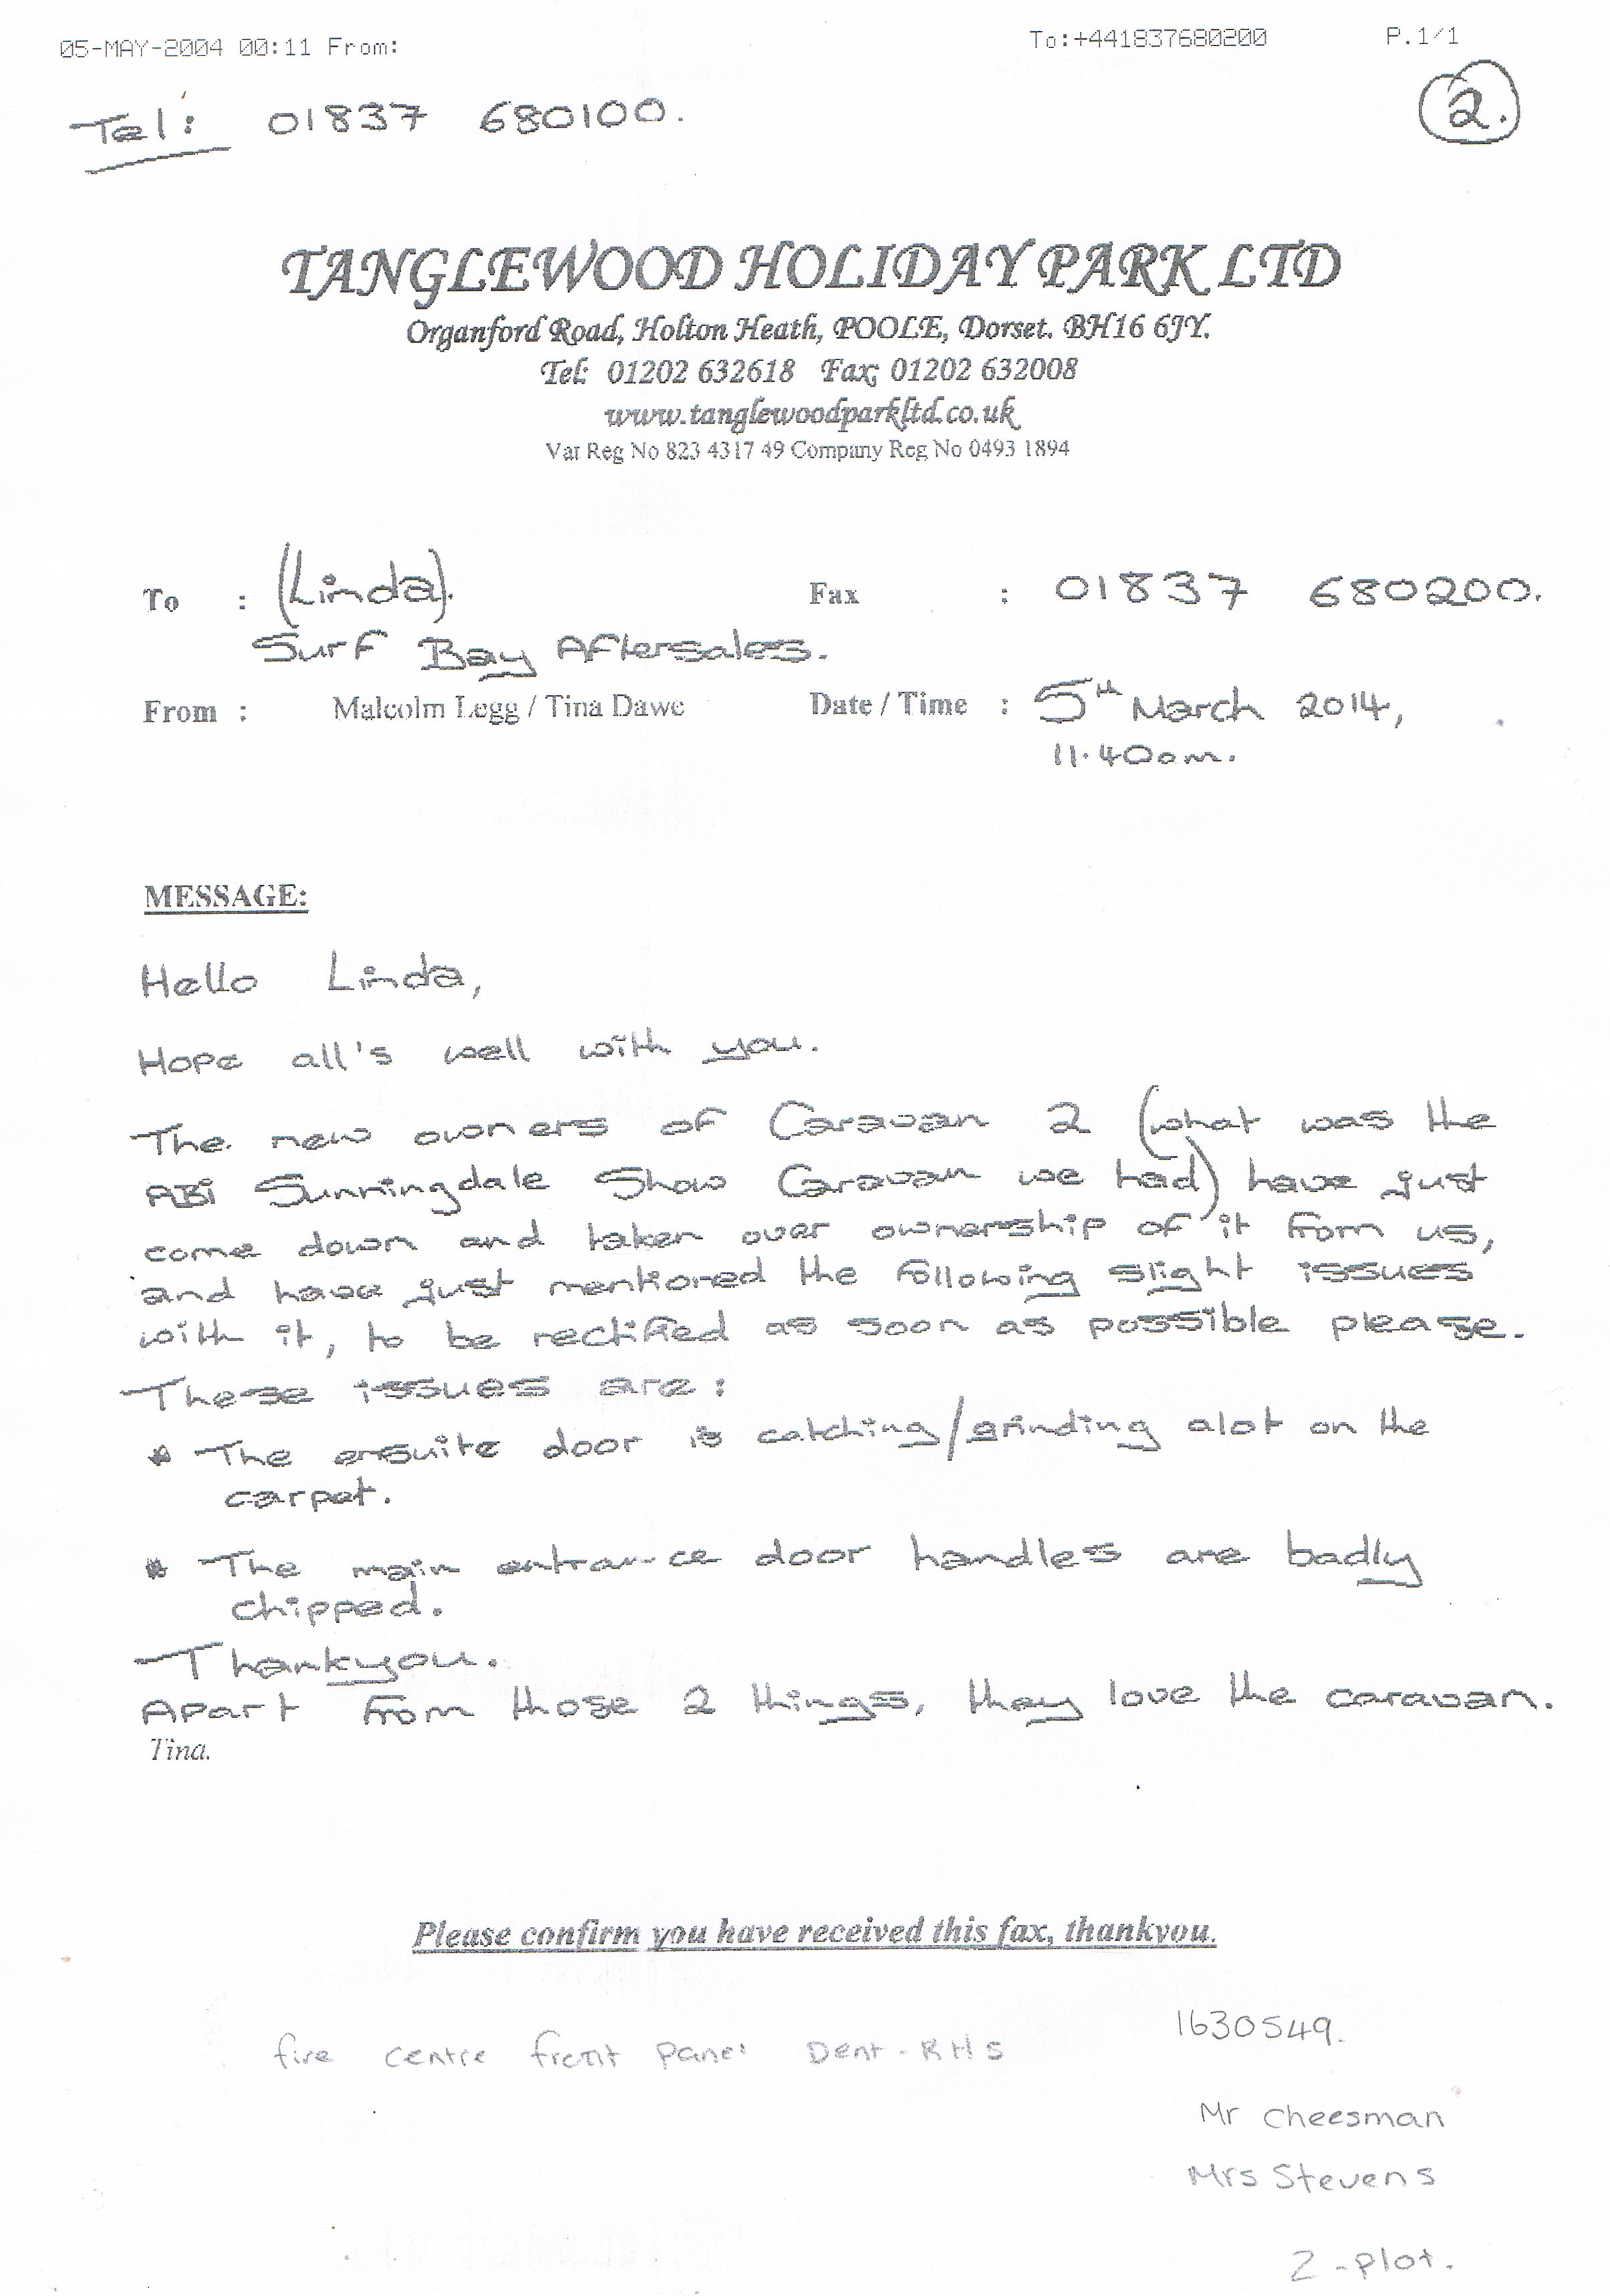 05-MAY-2004 00:11 From: To:+441837680200 P.1/1
Tel: 01837 680100. 2.
TANGLEWOOD HOLIDAY PARK LTD
Organford Road, Holton Heath, POOLE, Dorset. BH16 6JY.
Tel: 01202 632618 Fax; 01202 632008
www.tanglewoodparkltd.co.uk
Vat Reg No 823 4317 49 Company Reg No 0493 1894
To : (Linda). Fax : 01837 680200.
Surf Bay Aftersales.
From : Malcolm Legg / Tina Dawe Date / Time : 5th March 2014,
11.40am.
MESSAGE:
Hello Linda,
Hope all's well with you.
The new owners of Caravan 2 (what was the
ABi Sunningdale Show Caravan we had) have just
come down and taken over ownership of it from us,
and have just mentioned the following slight issues
with it, to be rectified as soon as possible please.
These issues are:
* The ensuite door is catching/grinding alot on the
carpet.
* The main entrance door handles are badly
chipped.
Thankyou.
Apart from those 2 things, they love the caravan.
Tina.
Please confirm you have received this fax, thankyou.
1630549.
fire centre front panel Dent - RHS
Mr Cheesman
Mrs Stevens
2 - plot.